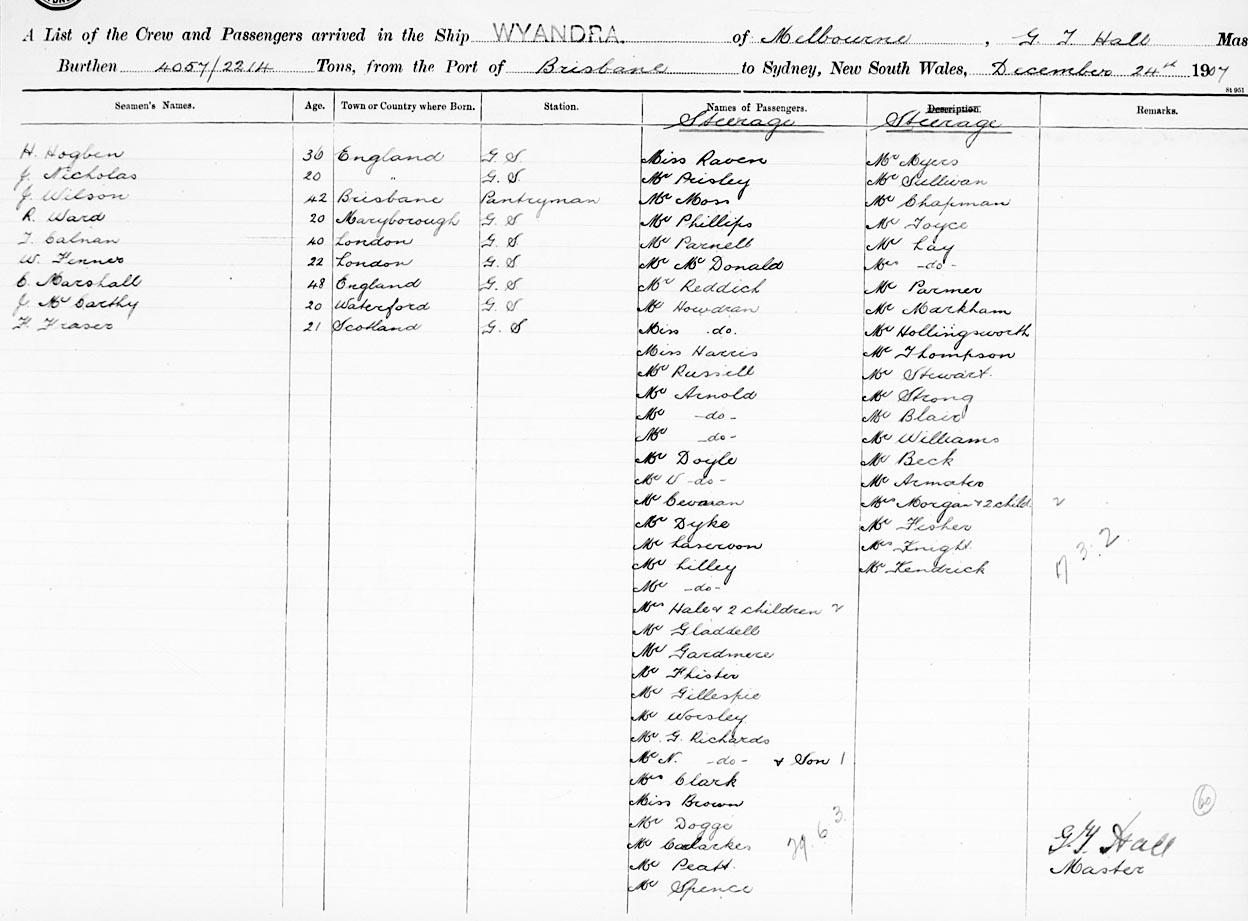 A List of the Crew and Passengers arrived in the Ship WYANDRA. of Melbourne, G. T Hall Mas
Burthen 4057/2214 Tons, from the Port of Brisbane to Sydney, New South Wales, December 24th 1907
St 951
Seamen's Names. Age. Town or Country where Born. Station. Names of Passengers. Description. Remarks.
Steerage Steerage
H. Hogben 36 England G. S. Miss Raven Mr Myers
J. Nicholas 20 " G. S Mr Paisley Mr Sullivan
J. Wilson 42 Brisbane Pantryman Mr Moss Mr Chapman
R. Ward 20 Maryborough G. S Mr Phillips Mr Joyce
T. Calnan 40 London G. S Mr Parnell Mr Lay
W. Fenner 22 London G. S Mr Mc Donald Mrs -do-
C. Marshall 48 England G. S Mr Reddich Mr Parmer
J. Mc Carthy 20 Waterford G. S Mr Howdran Mr Markham
F. Fraser 21 Scotland G. S Miss do. Mr Hollingsworth
Miss Harris Mr Thompson
Mr Russell Mr Stewart.
Mr Arnold Mr Strong
Mr -do- Mr Blair
Mr -do- Mr Williams
Mr Doyle Mr Beck
Mr W -do- Mr
Mr Mrs Morgan & 2 child. 2
Mr Dyke Mr Fisher
Mr Mrs Knight.
Mr Lilley Mr Kendrick
Mr -do-
17. 3. 2
Mrs Hale & 2 children 2
Mr Gladdell
Mr Gardmere
Mr Fhister
Mr Gillespie
Mr Worsley
Mr. G. Richards
Mr N. -do- & Son 1
Mrs Clark
Miss Brown
60
Mr Dogge
29. 6 3.
Mr
G. T. Hall
Mr Peatt.
Master
Mr Spence